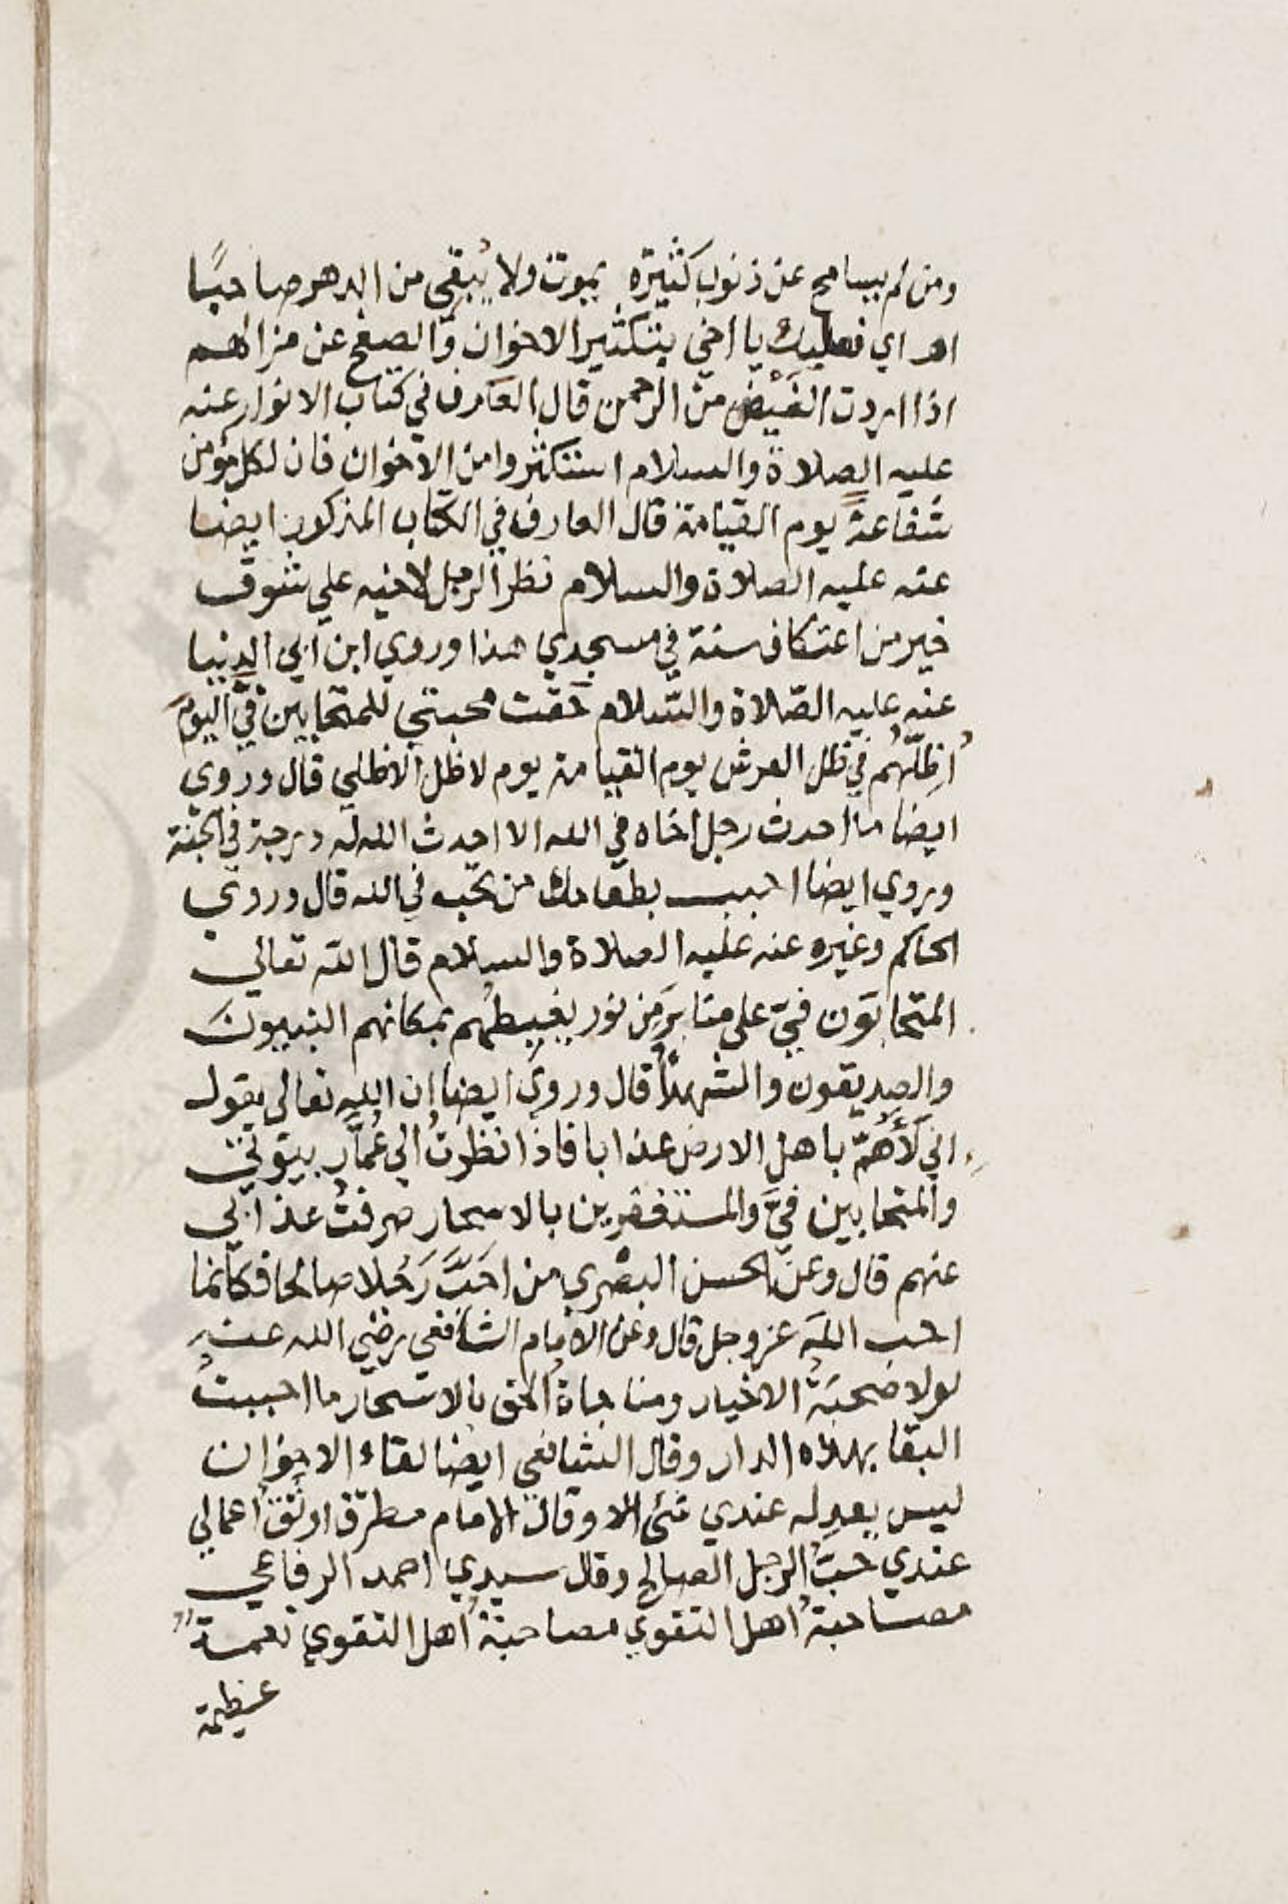 ومن لم يسامح عن ذنوب كثيرة يموت ولا يُبقي من الدهر صاحبًا
اهـ اي فعليك يا اخي بتكثير الاخوان والصفح عن مزالهم
اذا اردت الفَيْض من الرحمن قال العارف في كتاب الانوار عنه
عليه الصلاة والسلام استكثروا من الاخوان فان لكل مؤمن
شفاعةً يوم القيامة قال العارف في الكتاب المذكور ايضا
عنه عليه الصلاة والسلام نظر الرجل لاخيه علي شوق
خير من اعتكاف سنة في مسجدي هذا وروي ابن ابي الدنيا
عنه عليه الصّلاة والسّلام حَقت محبتي للمتحابين فيَّ اليومَ
اُظِلّهُم في ظل العرش يوم القيامة يوم لا ظل الا ظلي قال وروي
ايضا ما احدث رجل اخاه في الله الا احدث الله له درجة في الجنة
وروي ايضا احبب بطعامك من تحب في الله قال وروي
الحاكم وغيره عنه عليه الصلاة والسلام قال الله تعالي
المتحابّون فيّ على منابرَ مِن نور يغبطُهم بمكانهم النبيون
والصديقون والشهدأُ قال وروي ايضا ان الله تعالى يقول
اني لَأَهُمّ باهل الارض عذابا فاذا نظرتُ الي عُمَّار بيوتي
والمتحابين فيَّ والمستغفرين بالاسحار صرفتُ عذابي
عنهم قال وعن الحسن البصري من احَبَّ رَجُلا صالحا فكانما
احب اللهَ عز وجل قال وعن الامام الشافعي رضي الله عنه
لولا صحبَةُ الاخيار ومناجاةُ الحق بالاسحار ما احببتُ
البقا بهذه الدار وقال الشافعي ايضا لقاء الاخوان
ليس يعدِله عندي شئ الا وقال الامام مطرّف اوثَقُ اعمالي
عندي حبُّ الرجل الصالح وقال سيدي احمد الرفاعي
مصاحبةُ اهل التقوي مصاحبةُ اهل التقوي نعمةٌ
عظيمة